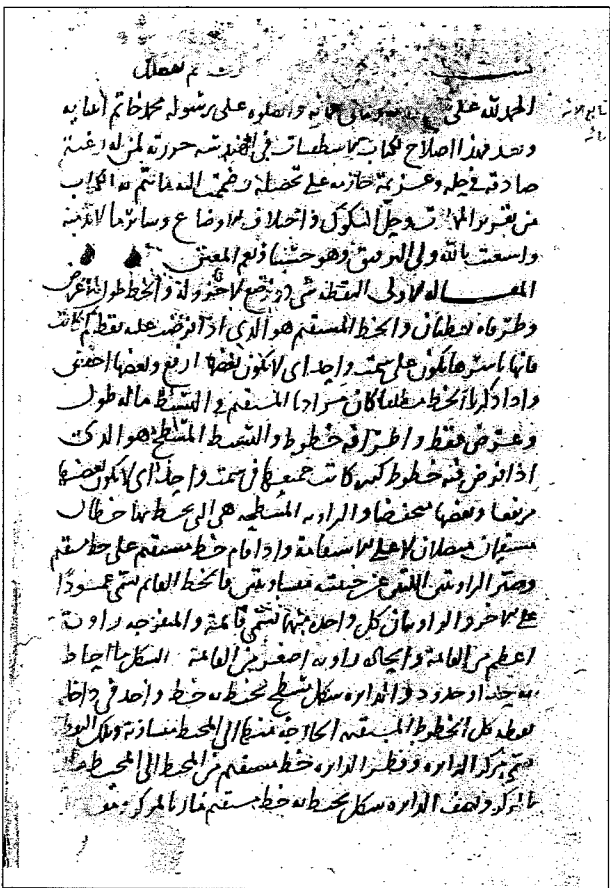 الحمد لله على وصلوته على رسوله محمد خاتم أنبيائه
وبعد فهذا اصلاح لكتاب الاسطقسات في الهندسه حررته لمن له رغبة
صادقه في حله وعزيمة جازمه على تحصيله وضمت اليه ما تتم به الكتاب
من تقرير وحل الشكوك واختلاف الاوضاع وسائر ما لابد منه
واستعنت بالله ولي التوفيق وهو حسبنا ونعم المعين
المقـــاله الاولى النقطه شي ذو وضع لا جزو له والخط طول بلا عرض
وطرفاه نقطتان والخط المستقيم هو الذي اذا فرضت عليه نقط كم كانت
فانها باسرها يكون على سمت واحد اى لا يكون بعضها ارفع وبعضها اخفض
واذا ذكرنا الخط مطلقا كان مرادنا المستقيم والبسيط ماله طول
وعرض فقط واطرافه خطوط والبسيط المسطح هو الذى
اذا فرض فيه خطوط كيف كانت جميعها في سمت واحد اى لا يكون بعضها
مرتفعا وبعضها منخفضا والزاويه المسطحه هي التي يحيط بها خطان
مستقيمان متصلان لا على الاستقامة واذا قام خط مستقيم على خط مستقيم
وصير الزاويتين اللتين عن جنبتيه متساويتين فالخط القايم يسمى عمودًا
على الاخر والزاويتان كل واحده منهما تسمى قائمة والمنفرجه زاوية
اعظم من القائمة والحاده زاويه اصغر من القائمة الشكل ما احاط
به حد او حدود والدايره شكل مسطح يحيط به خط واحد في داخله
نقطه كل الخطوط المستقيمه الخارجة منها الى المحيط متساوية وتلك النقطه
تسمى مركز الدايره وقطر الدايره خط مستقيم من المحيط الى المحيط
بالمركز ونصف الدايره شكل يحيط به خط مستقيم مار بالمركز